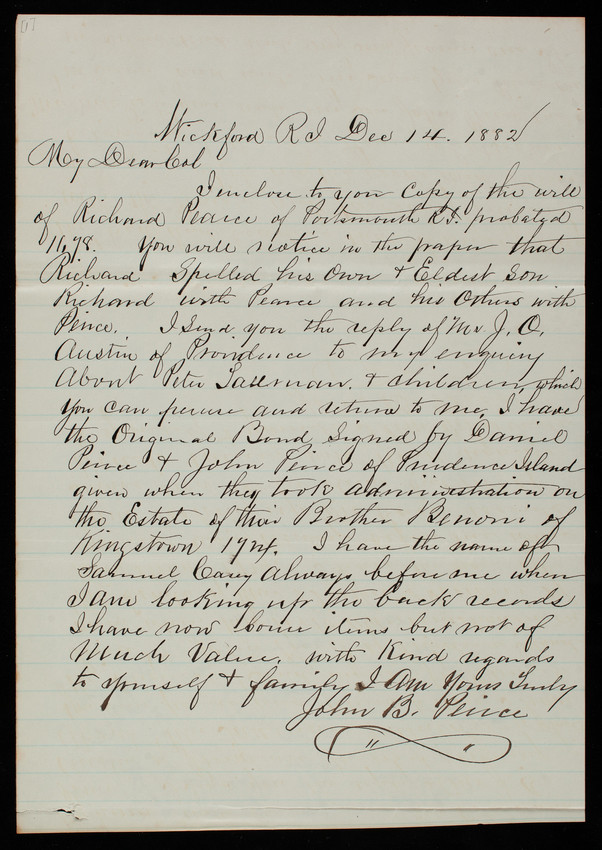 07
Wickford R I Dec 14. 1882
My Dear Col
I inclose to you Copy of the will
of Richard Pearce of Portsmouth R.I. probated
1678. You will notice in the paper that
Richard Spelled his own & Eldest Son
Richard with Pearce and his Others with
Peirce. I Send you the reply of Mr J. O.
Austin of Providence to my enquiry
About Peter Tallman. & children, which
you can peruse and return to me. I have
the Original Bond Signed by Daniel
Peirce & John Peirce of Prudence Island
given when they took administration on
the Estate of their Brother Benoni of
Kingstown 1724. I have the name of
Samuel Casey Always before me when
I am looking up the back records
I have now some items but not of
Much Value. with Kind regards
to yourself & family I Am Yours Truly
John B. Peirce